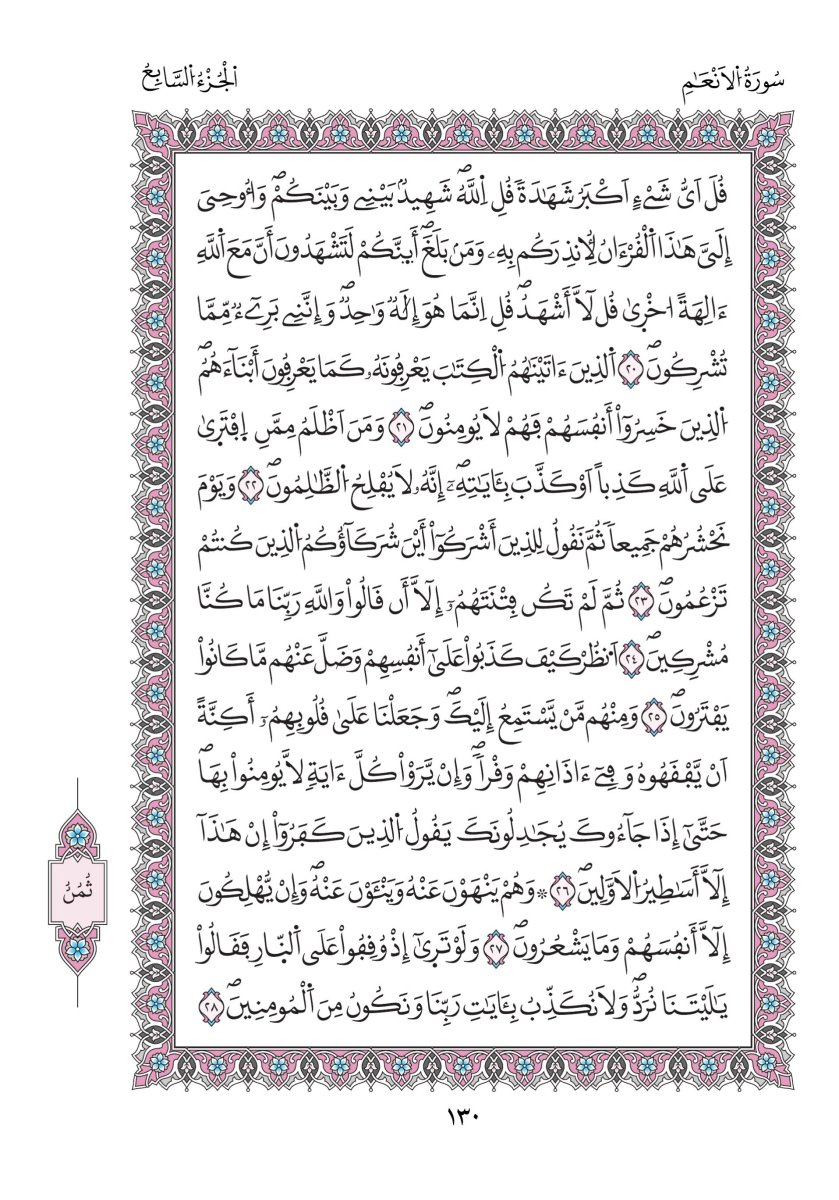 سُورَةُ اُ۬لَانْعَٰمِ
اَ۬لْجُزْءُ اُ۬لسَّابِعُ
قُلَ اَيُّ شَےْءٍ اَكْبَرُ شَهَٰدَةٗۖ قُلِ اِ۬للَّهُۖ شَهِيدُۢ بَيْنِے وَبَيْنَكُمْۖ وَأُوحِيَ
إِلَيَّ هَٰذَا اَ۬لْقُرْءَانُ لِأُنذِرَكُم بِهِۦ وَمَنۢ بَلَغَۖ أَئِنَّكُمْ لَتَشْهَدُونَ أَنَّ مَعَ اَ۬للَّهِ
ءَالِهَةً اُخْر۪ىٰۖ قُل لَّآ أَشْهَدُۖ قُلِ اِنَّمَا هُوَ إِلَٰهٞ وَٰحِدٞ وَإِنَّنِے بَرِےٓءٞ مِّمَّا
تُشْرِكُونَۖ ٢٠ اَ۬لذِينَ ءَاتَيْنَٰهُمُ اُ۬لْكِتَٰبَ يَعْرِفُونَهُۥ كَمَا يَعْرِفُونَ أَبْنَآءَهُمُۖ
اُ۬لذِينَ خَسِرُوٓاْ أَنفُسَهُمْ فَهُمْ لَا يُومِنُونَۖ ٢١ وَمَنَ اَظْلَمُ مِمَّنِ اِ۪فْتَر۪ىٰ
عَلَى اَ۬للَّهِ كَذِباً اَوْ كَذَّبَ بِـَٔايَٰتِهِۦٓۖ إِنَّهُۥ لَا يُفْلِحُ اُ۬لظَّٰلِمُونَۖ ٢٢ وَيَوْمَ
نَحْشُرُهُمْ جَمِيعاٗ ثُمَّ نَقُولُ لِلذِينَ أَشْرَكُوٓاْ أَيْنَ شُرَكَآؤُكُمُ اُ۬لذِينَ كُنتُمْ
تَزْعُمُونَۖ ٢٣ ثُمَّ لَمْ تَكُن فِتْنَتَهُمُۥٓ إِلَّآ أَن قَالُواْ وَاللَّهِ رَبِّنَا مَا كُنَّا
مُشْرِكِينَۖ ٢٤ اَ۟نظُرْ كَيْفَ كَذَبُواْ عَلَىٰٓ أَنفُسِهِمْ وَضَلَّ عَنْهُم مَّا كَانُواْ
يَفْتَرُونَۖ ٢٥ وَمِنْهُم مَّنْ يَّسْتَمِعُ إِلَيْكَۖ وَجَعَلْنَا عَلَىٰ قُلُوبِهِمُۥٓ أَكِنَّةً
اَنْ يَّفْقَهُوهُ وَفِےٓ ءَاذَانِهِمْ وَقْراٗۖ وَإِنْ يَّرَوْاْ كُلَّ ءَايَةٖ لَّا يُومِنُواْ بِهَاۖ
حَتَّىٰٓ إِذَا جَآءُوكَ يُجَٰدِلُونَكَ يَقُولُ اُ۬لذِينَ كَفَرُوٓاْ إِنْ هَٰذَآ
إِلَّآ أَسَٰطِيرُ اُ۬لَاوَّلِينَۖ ٢٦ ۞ وَهُمْ يَنْهَوْنَ عَنْهُ وَيَنْـَٔوْنَ عَنْهُۖ وَإِنْ يُّهْلِكُونَ
إِلَّآ أَنفُسَهُمْ وَمَا يَشْعُرُونَۖ ٢٧ وَلَوْ تَر۪ىٰٓ إِذْ وُقِفُواْ عَلَى اَ۬لنّ۪ارِ فَقَالُواْ
يَٰلَيْتَنَا نُرَدُّۖ وَلَا نُكَذِّبُ بِـَٔايَٰتِ رَبِّنَا وَنَكُونُ مِنَ اَ۬لْمُومِنِينَۖ ٢٨
ثُمُنُ
١٣٠